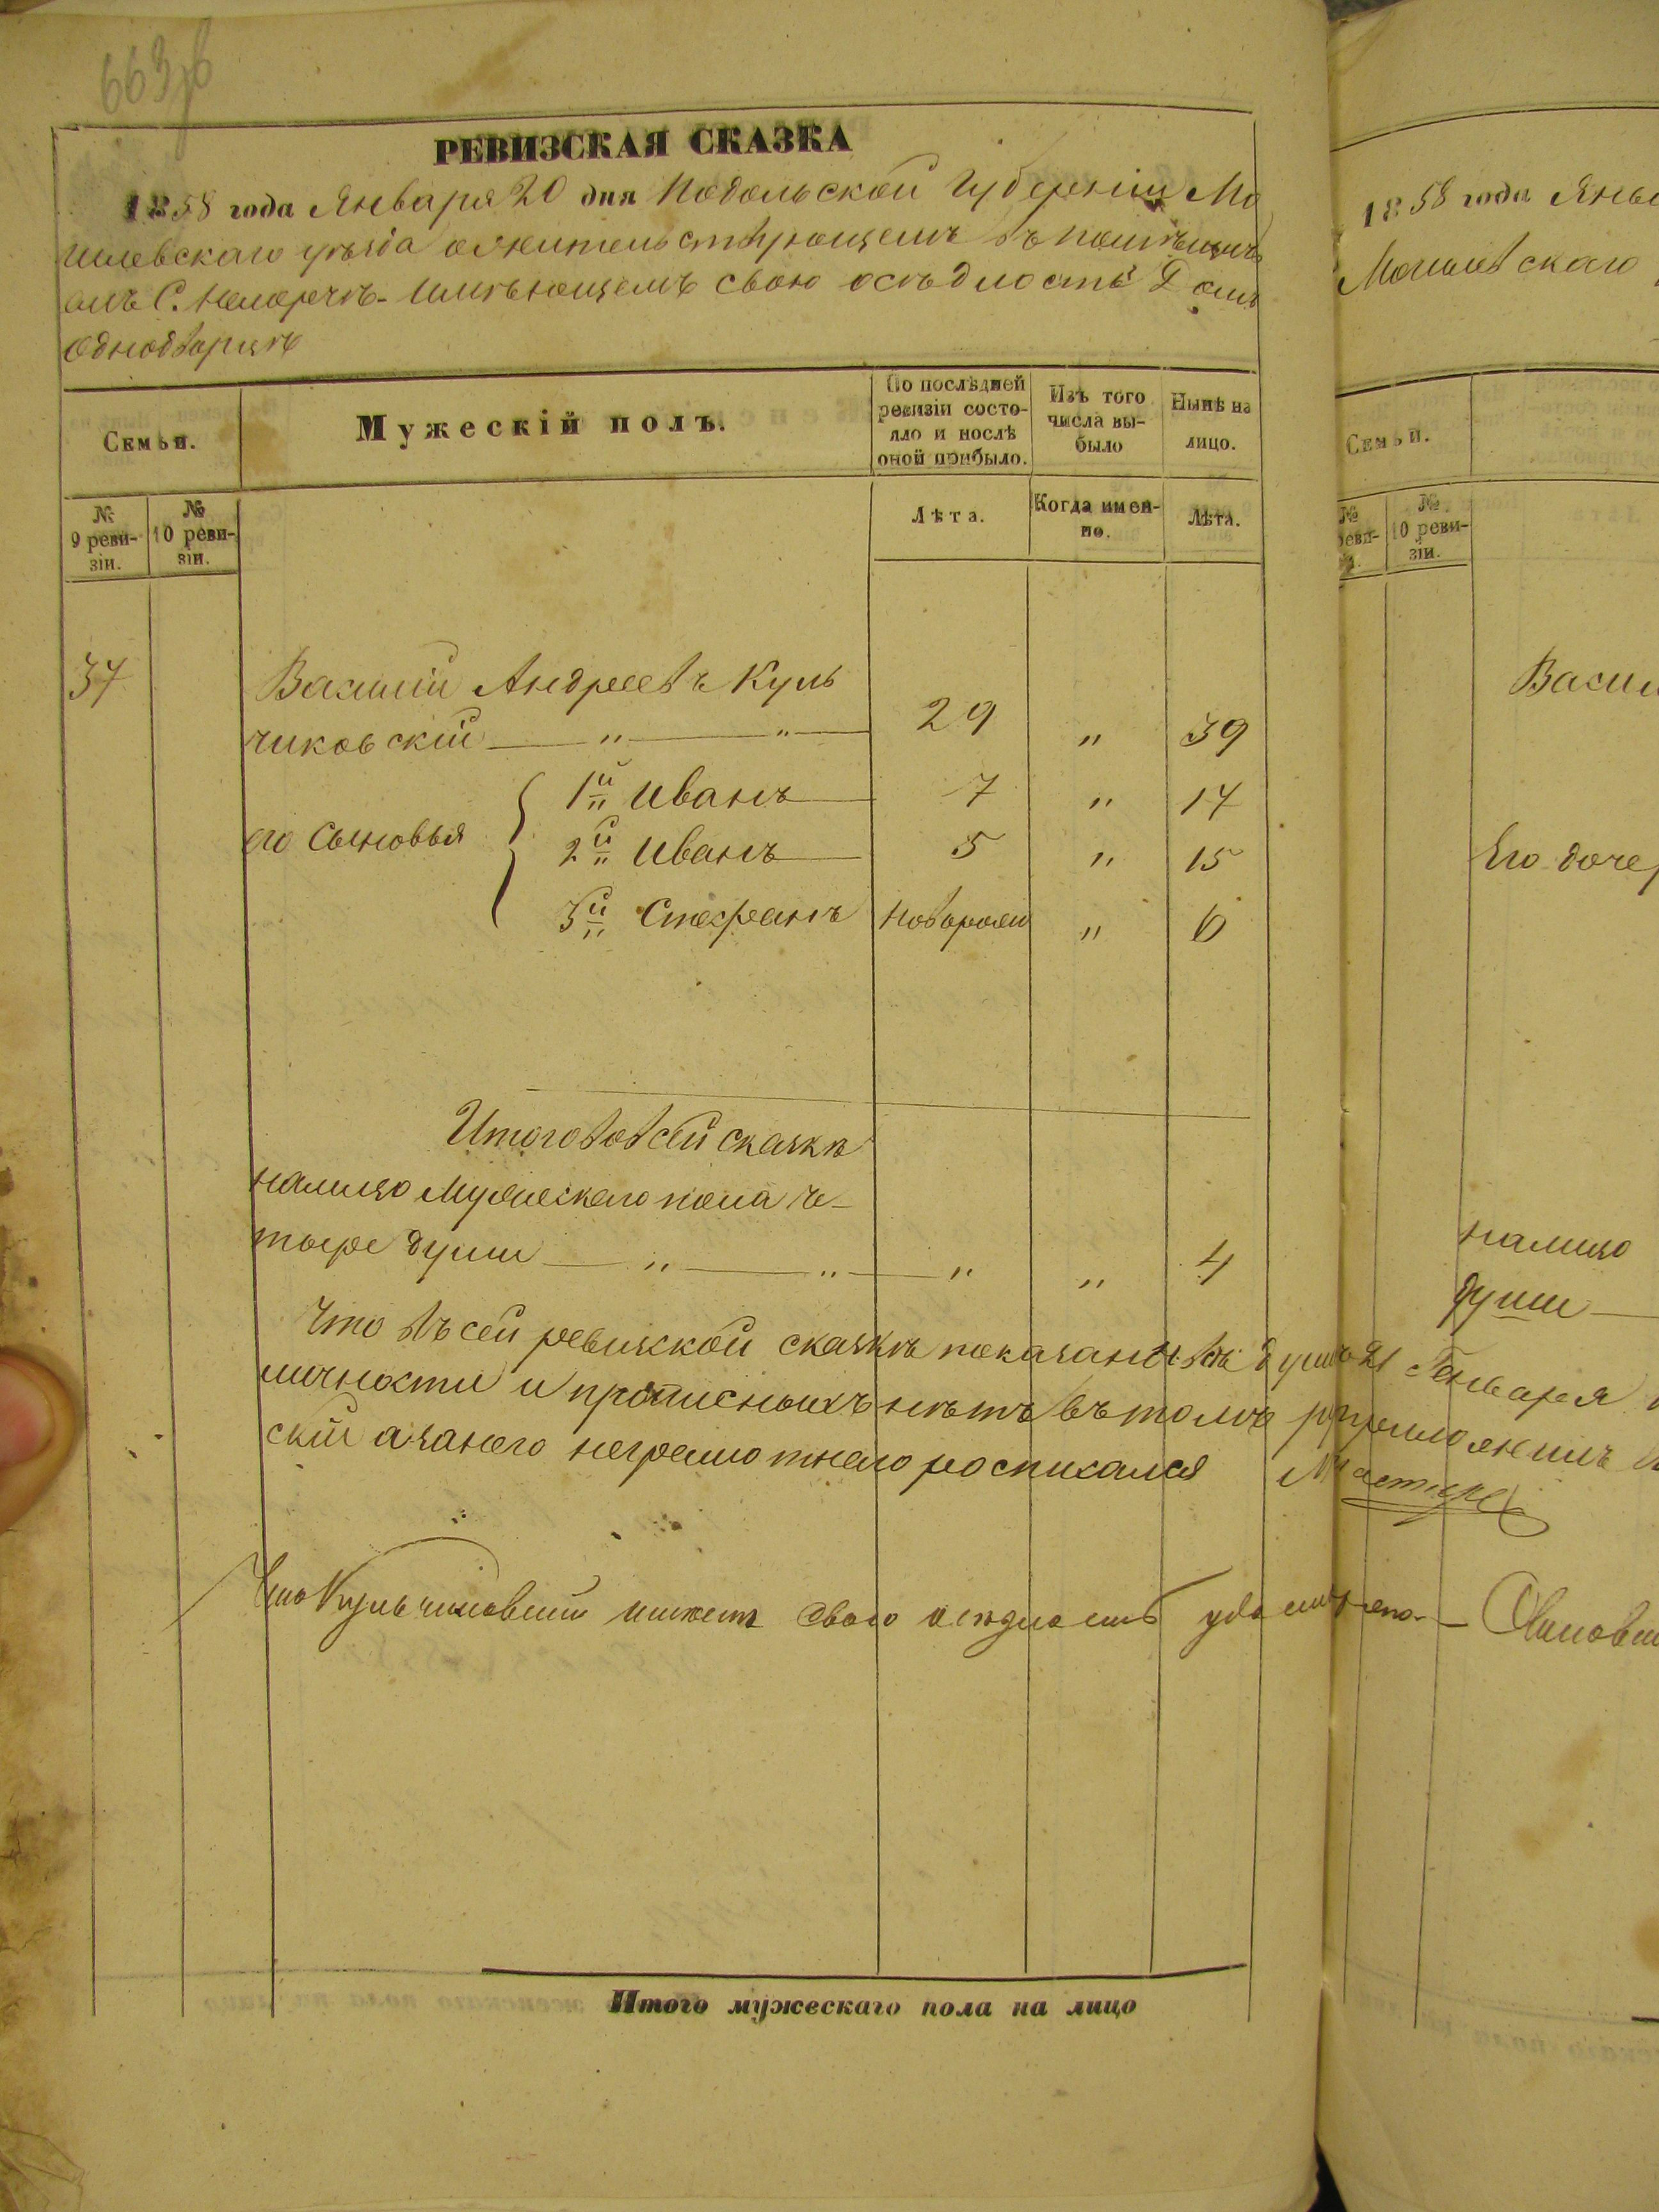 663об
РЕВИЗСКАЯ СКАЗКА
1858 года Января 20 дня Подольской Губерніи Мо
гилевскаго уѣзда о жительствующемъ въ помѣщичь
омъ С. Немеречѣ имѣющемъ свою осѣдлость Домъ
Однодворцѣ
Семьи.
Мужескій полъ.
По послѣдней ревизіи состояло и послѣ оной прибыло.
Изъ того числа выбыло
Нынѣ на лицо.
№ 9 ревизіи.
№ 10 ревизіи.
Лѣта.
Когда именно.
Лѣта.
37
Василій Андреевъ Куль
чиковскій — " — " — 29 " 39
его Сыновья
1й Иванъ — 7 " 14
2й Иванъ — 5 " 15
3й Стефанъ новорожд " 6
Итого во всей сказкѣ
налицо Мужескаго пола че-
тыре души — " — " — " " 4
Что въ сей ревизской сказкѣ показаны всѣ души
личности и прописныхъ нѣтъ въ томъ
скій а за него неграмотнаго росписался
Что Кульчиковскій имѣетъ свою осѣдлость удостовѣряю —
Итого мужескаго пола на лицо
1858 года Янв
Могилевскаго
Семьи.
№ реви-
№ 10 ревизіи.
Васил
Его дочер
налицо
души —
Генваря